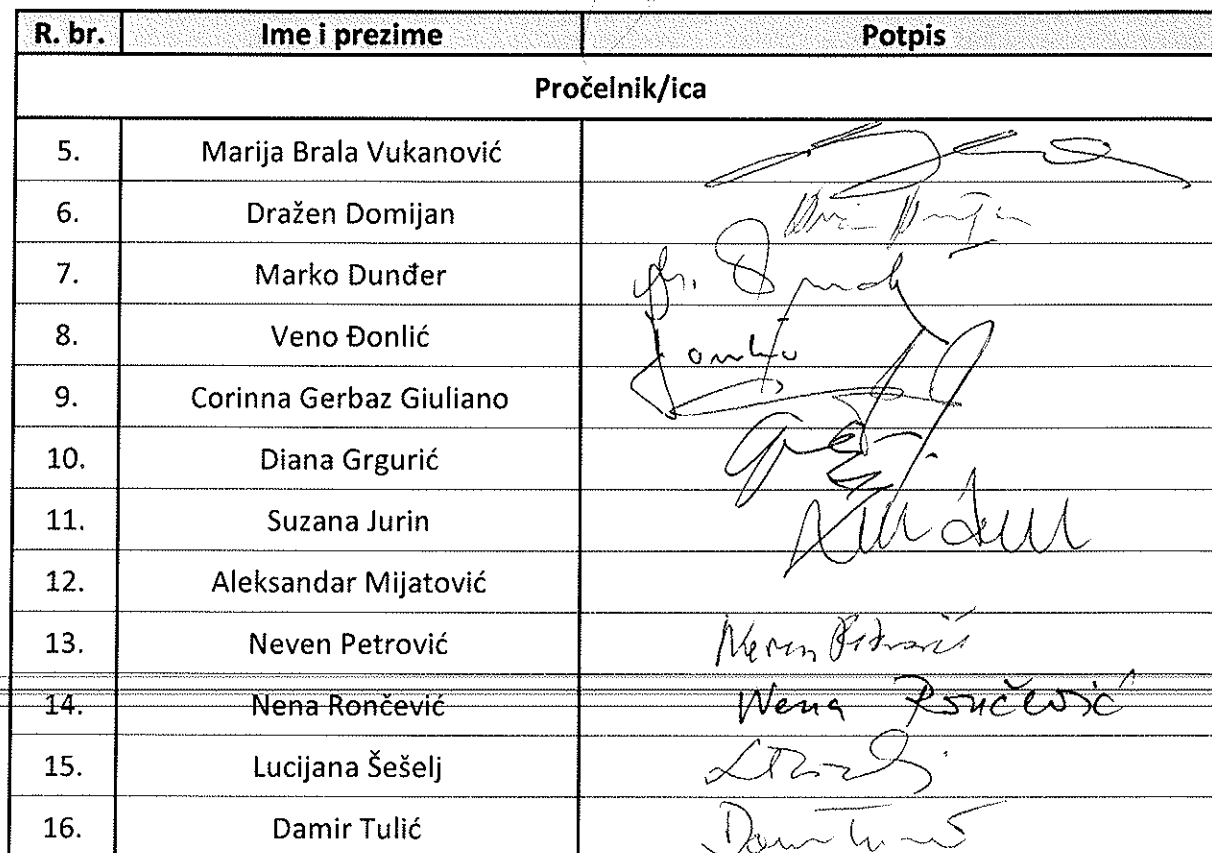 R. br. Ime i prezime Potpis
Pročelnik/ica
5. Marija Brala Vukanović
6. Dražen Domijan
7. Marko Dunđer
8. Veno Đonlić
9. Corinna Gerbaz Giuliano
10. Diana Grgurić
11. Suzana Jurin
12. Aleksandar Mijatović
13. Neven Petrović Neven Petrović
14. Nena Rončević Nena Rončević
15. Lucijana Šešelj
16. Damir Tulić